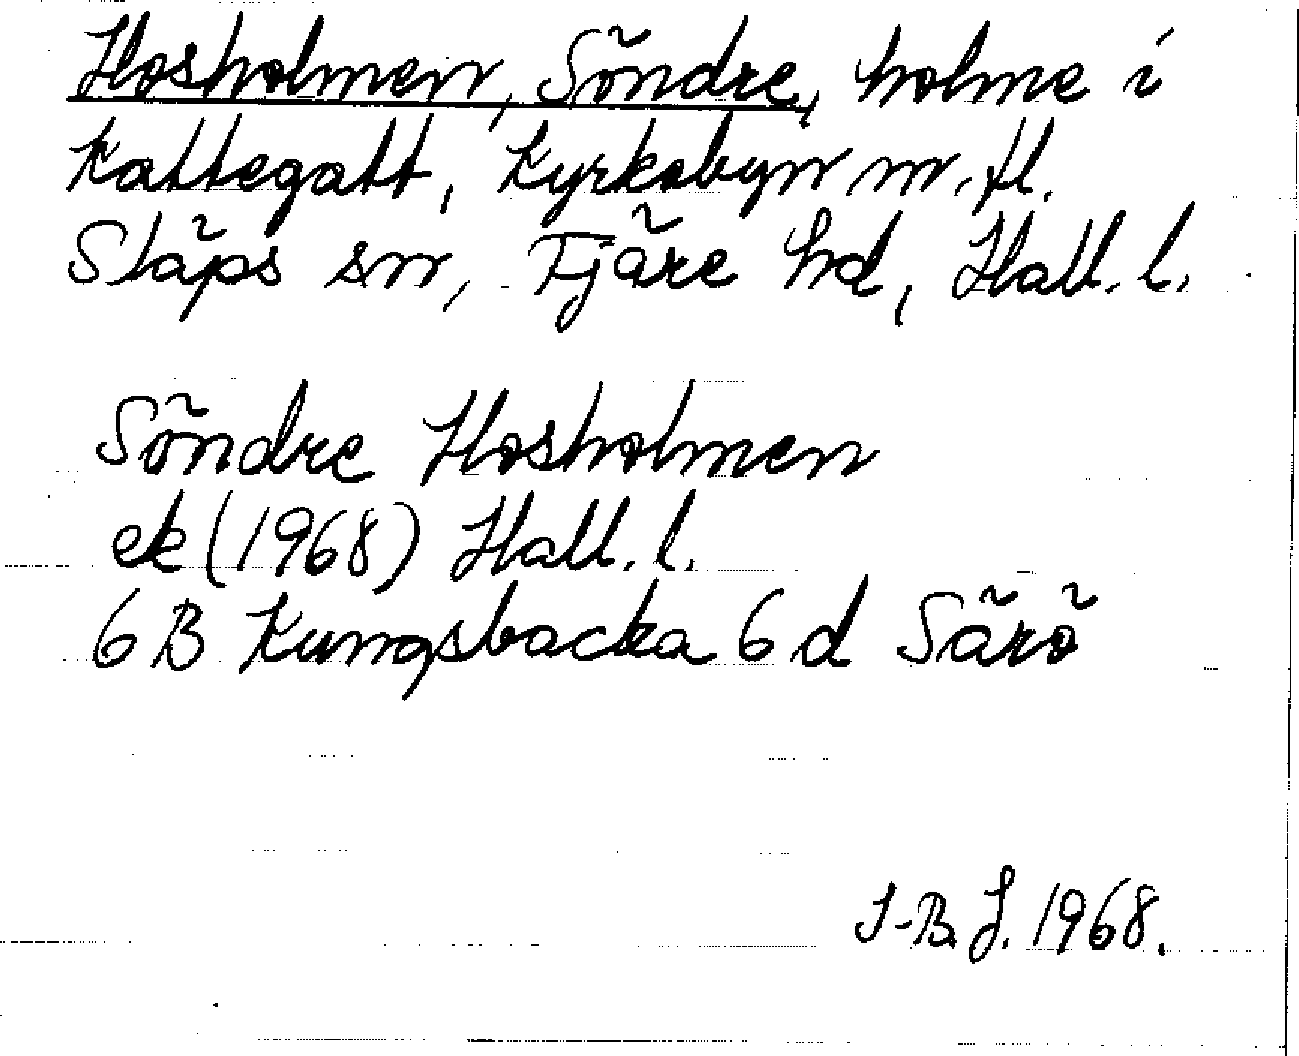 Hosholmen, Söndre, holme i
Kattegatt, Kyrkobyn m.fl.
Släps sn, Fjäre hd, Hall. l.
Söndre Hosholmen
ek (1968) Hall. l.
6 B Kungsbacka 6 d Särö
I-B. J. 1968.